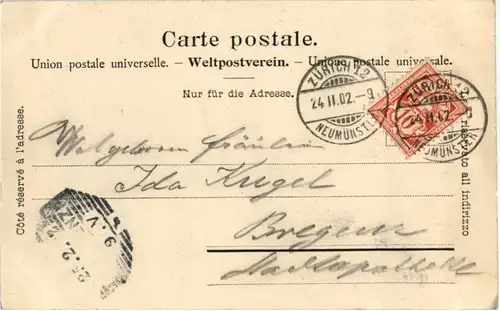 Carte postale.
Union postale universelle. – Weltpostverein. – Unione postale universale.
Nur für die Adresse.
ZÜRICH 12
24.II.02.–9
NEUMÜNSTER
ZÜRICH 12
24.II.02
NEUMÜNSTER
10
Côté réservé à l'adresse.
riservato all indirizzo
Wolgeboren Fräulein
Ida Krugel
Bregenz
Stadtapotheke